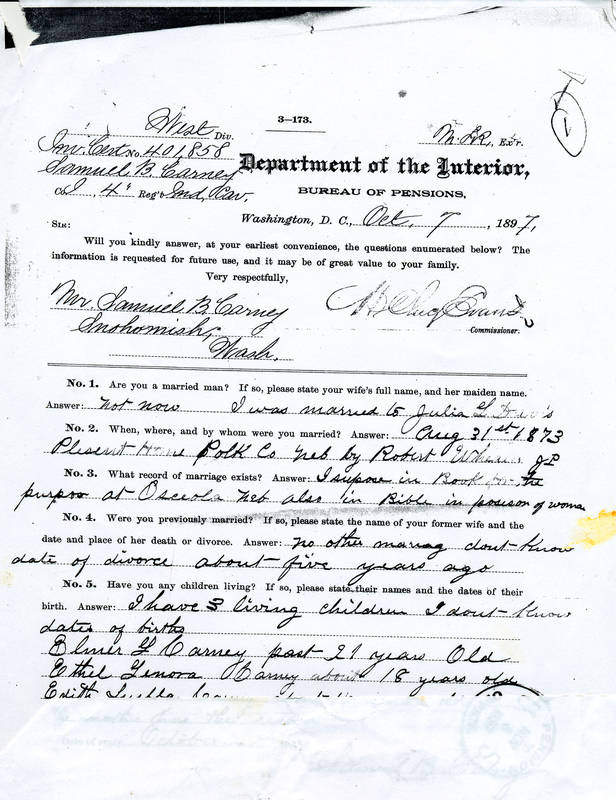 3—173.
West Div.
M.L.R, Ex'r.
Inv. Cert No. 401858
Samuel B. Carney
Co. I, 4" Reg't Ind, Cav.
Department of the Interior,
BUREAU OF PENSIONS,
Washington, D. C., Oct, 7, 1897,
SIR:
Will you kindly answer, at your earliest convenience, the questions enumerated below? The
information is requested for future use, and it may be of great value to your family.
Very respectfully,
Mr. Samuel B. Carney
Evans
Snohomish,
Commissioner.
Wash.
No. 1. Are you a married man? If so, please state your wife's full name, and her maiden name.
Answer: Not now I was married to Julia
No. 2. When, where, and by whom were you married? Answer: Aug 31st 1873
Plesent Home Polk Co Neb by Robert JP
No. 3. What record of marriage exists? Answer: I supose in Book for the
purpos at Osceola Neb also in Bible in posison of woman
No. 4. Were you previously married? If so, please state the name of your former wife and the
date and place of her death or divorce. Answer: no other marrag dont know
date of divorce about five years ago
No. 5. Have you any children living? If so, please state their names and the dates of their
birth. Answer: I have 3 living children I dont know
dates of births
Elmer L Carney past 21 years Old
Ethel Lenora Carney about 18 years old
Edith